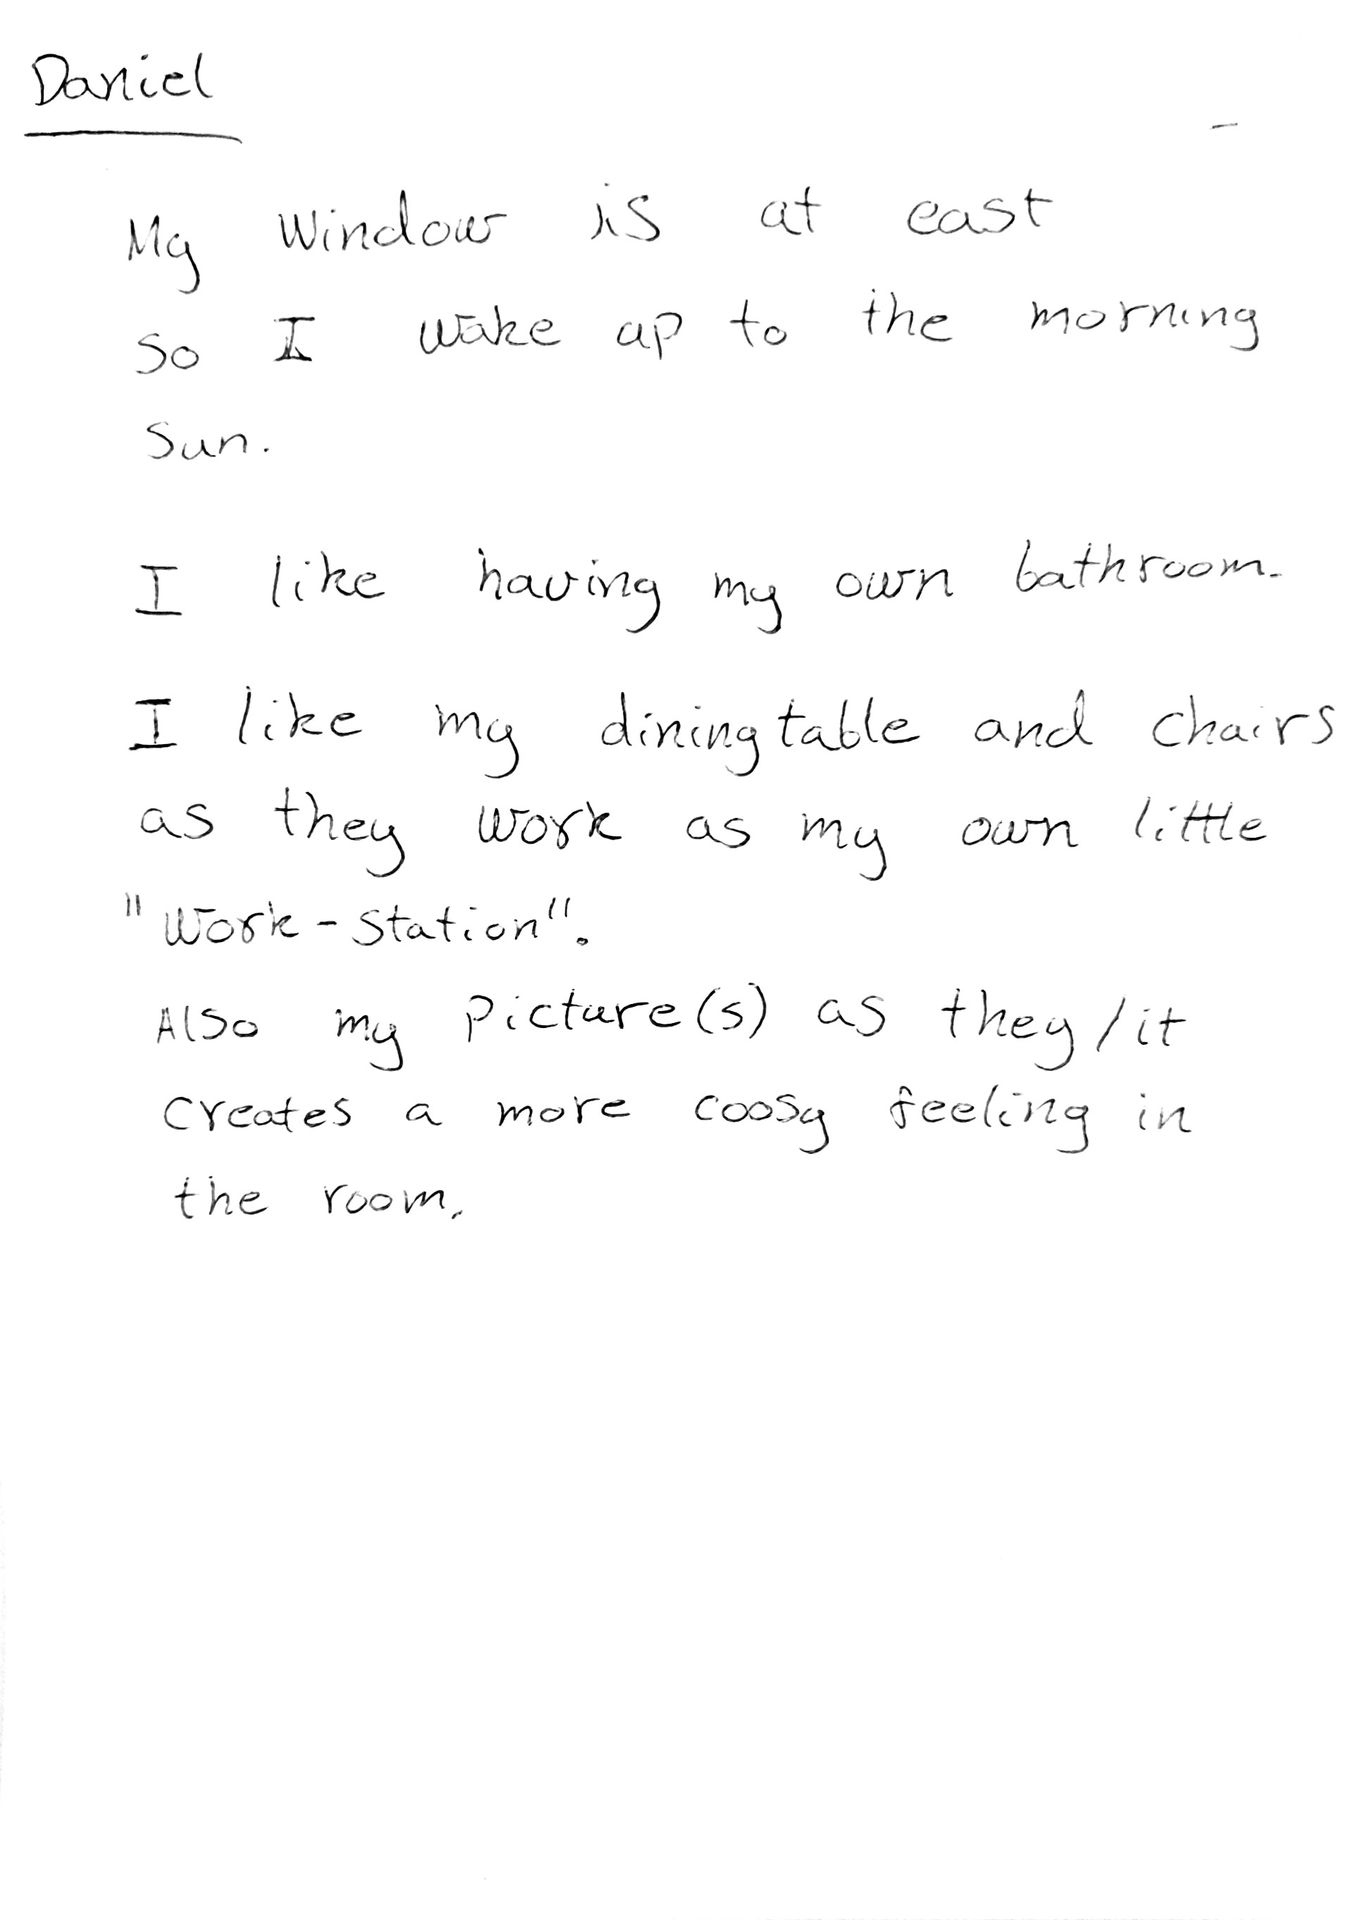 Daniel
My window is at east
so I wake up to the morning
sun.
I like having my own bathroom.
I like my diningtable and chairs
as they work as my own little
"Work-station".
Also my picture(s) as they/it
creates a more coosy feeling in
the room.